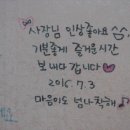 사장님 인상좋아요
기분좋게 즐거운시간
보내다 갑니다 ♡
2016.7.3
마음이도 넘나착해